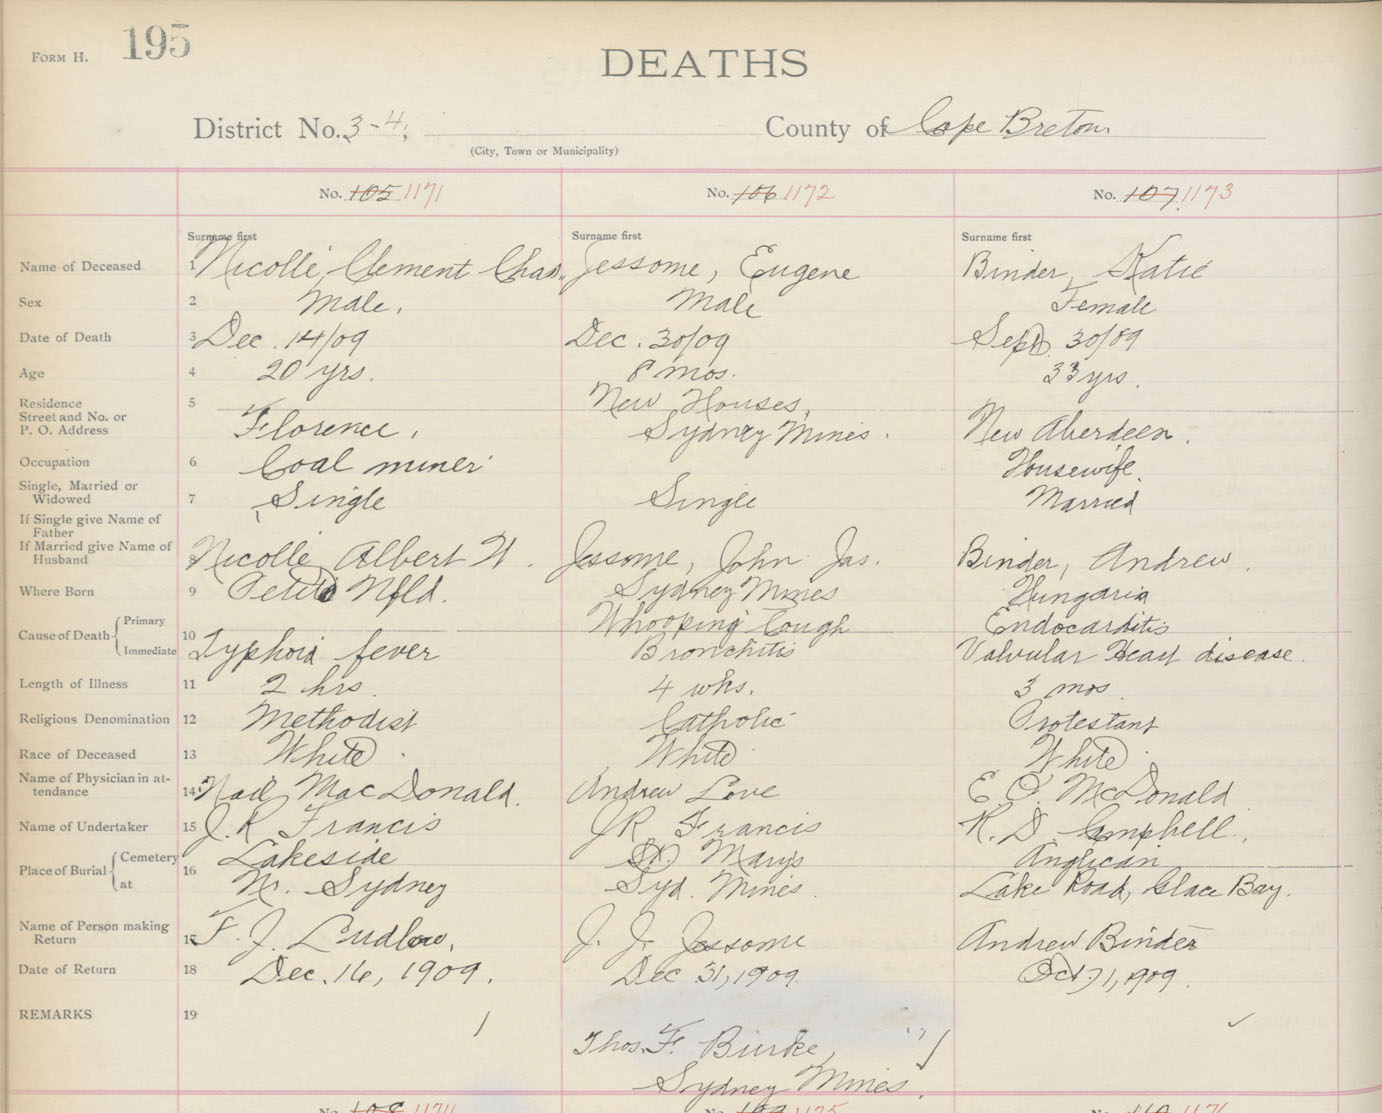 FORM H. 195
DEATHS
District No. 3-4, County of Cape Breton
(City, Town or Municipality)
No. 105 1171 No. 106 1172 No. 107 1173
Surname first Surname first Surname first
Name of Deceased 1 Nicolle, Clement Chas. Jessome, Eugene Binder, Katie
Sex 2 Male. Male Female
Date of Death 3 Dec. 14/09 Dec. 30/09 Sept. 30/09
Age 4 20 yrs. 8 mos. 33 yrs.
Residence 5 New Houses,
Street and No. or
P. O. Address Florence, Sydney Mines. New Aberdeen.
Occupation 6 Coal miner Housewife.
Single, Married or
Widowed 7 Single Single Married
If Single give Name of
Father
If Married give Name of
Husband 8 Nicolle, Albert W. Jessome, John Jas. Binder, Andrew.
Where Born 9 Petite Nfld. Sydney Mines Hungaria
Cause of Death Primary 10 Whooping Cough Endocarditis
Immediate Typhoid fever Bronchitis Valvular Heart disease.
Length of Illness 11 2 hrs. 4 wks. 3 mos.
Religious Denomination 12 Methodist Catholic Protestant
Race of Deceased 13 White. White White.
Name of Physician in at-
tendance 14 Neil MacDonald. Andrew Love E. O. McDonald
Name of Undertaker 15 J. R Francis JR Francis R. D Campbell.
Place of Burial Cemetery 16 Lakeside St. Marys Anglican
at N. Sydney Syd. Mines. Lake Road, Glace Bay.
Name of Person making
Return 17 F. J. Ludlow, J. J. Jessome Andrew Binder
Date of Return 18 Dec. 16, 1909. Dec 31, 1909. Oct 1, 1909.
REMARKS 19
Thos. F. Burke,
Sydney Mines.
No. 108 No. 109 1175 No. 110 1176